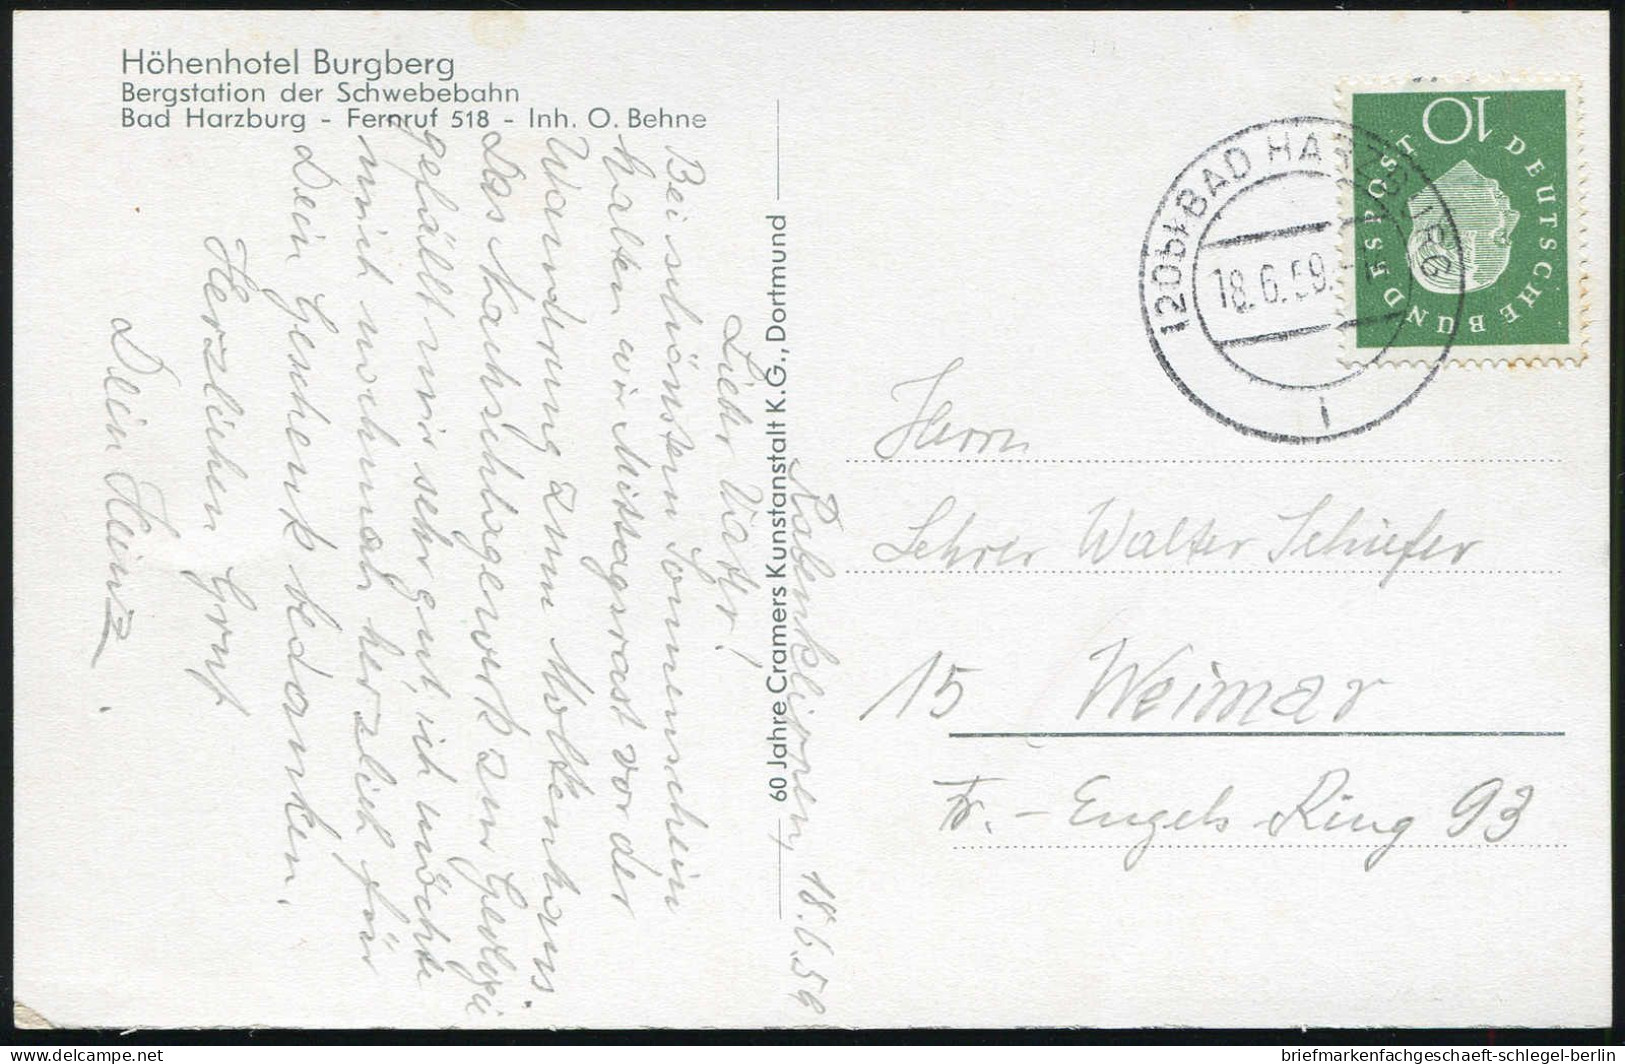 Höhenhotel Burgberg
Bergstation der Schwebebahn
Bad Harzburg - Fernruf 518 - Inh. O. Behne
Rabenklippen, 18.6.59
Lieber Vater!
Bei schönstem Sonnenschein
halten wir Mittagsrast vor der
Wanderung zum Molkenhaus.
Das Nachschlagewerk zur Geologie
gefällt mir sehr gut, ich möchte
mich nochmal herzlich für
Dein Geschenk bedanken.
Herzlichen Gruß
Dein Heinz.
60 Jahre Cramers Kunstanstalt K.G., Dortmund
10
DEUTSCHE BUNDESPOST
(20b) BAD HARZBURG
18.6.59.
i
Herrn
Lehrer Walter Schiefer
15 Weimar
Fr.- Engels Ring 93
briefmarkenfachgeschaeft-schlegel-berlin
delcampe.net